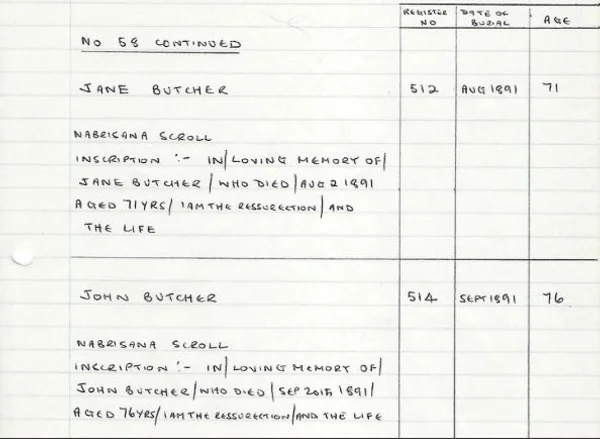 REGISTER NO DATE OF BURIAL AGE
No 58 CONTINUED
JANE BUTCHER 512 AUG 1891 71
NABRISANA SCROLL
INSCRIPTION :- IN/LOVING MEMORY OF/
JANE BUTCHER/WHO DIED/AUG 2 1891
AGED 71YRS/ I AM THE RESSURECTION/AND
THE LIFE
JOHN BUTCHER 514 SEPT 1891 76
NABRISANA SCROLL
INSCRIPTION :- IN/LOVING MEMORY OF/
JOHN BUTCHER/WHO DIED/SEP 20th 1891/
AGED 76YRS/I AM THE RESSURECTION/AND THE LIFE